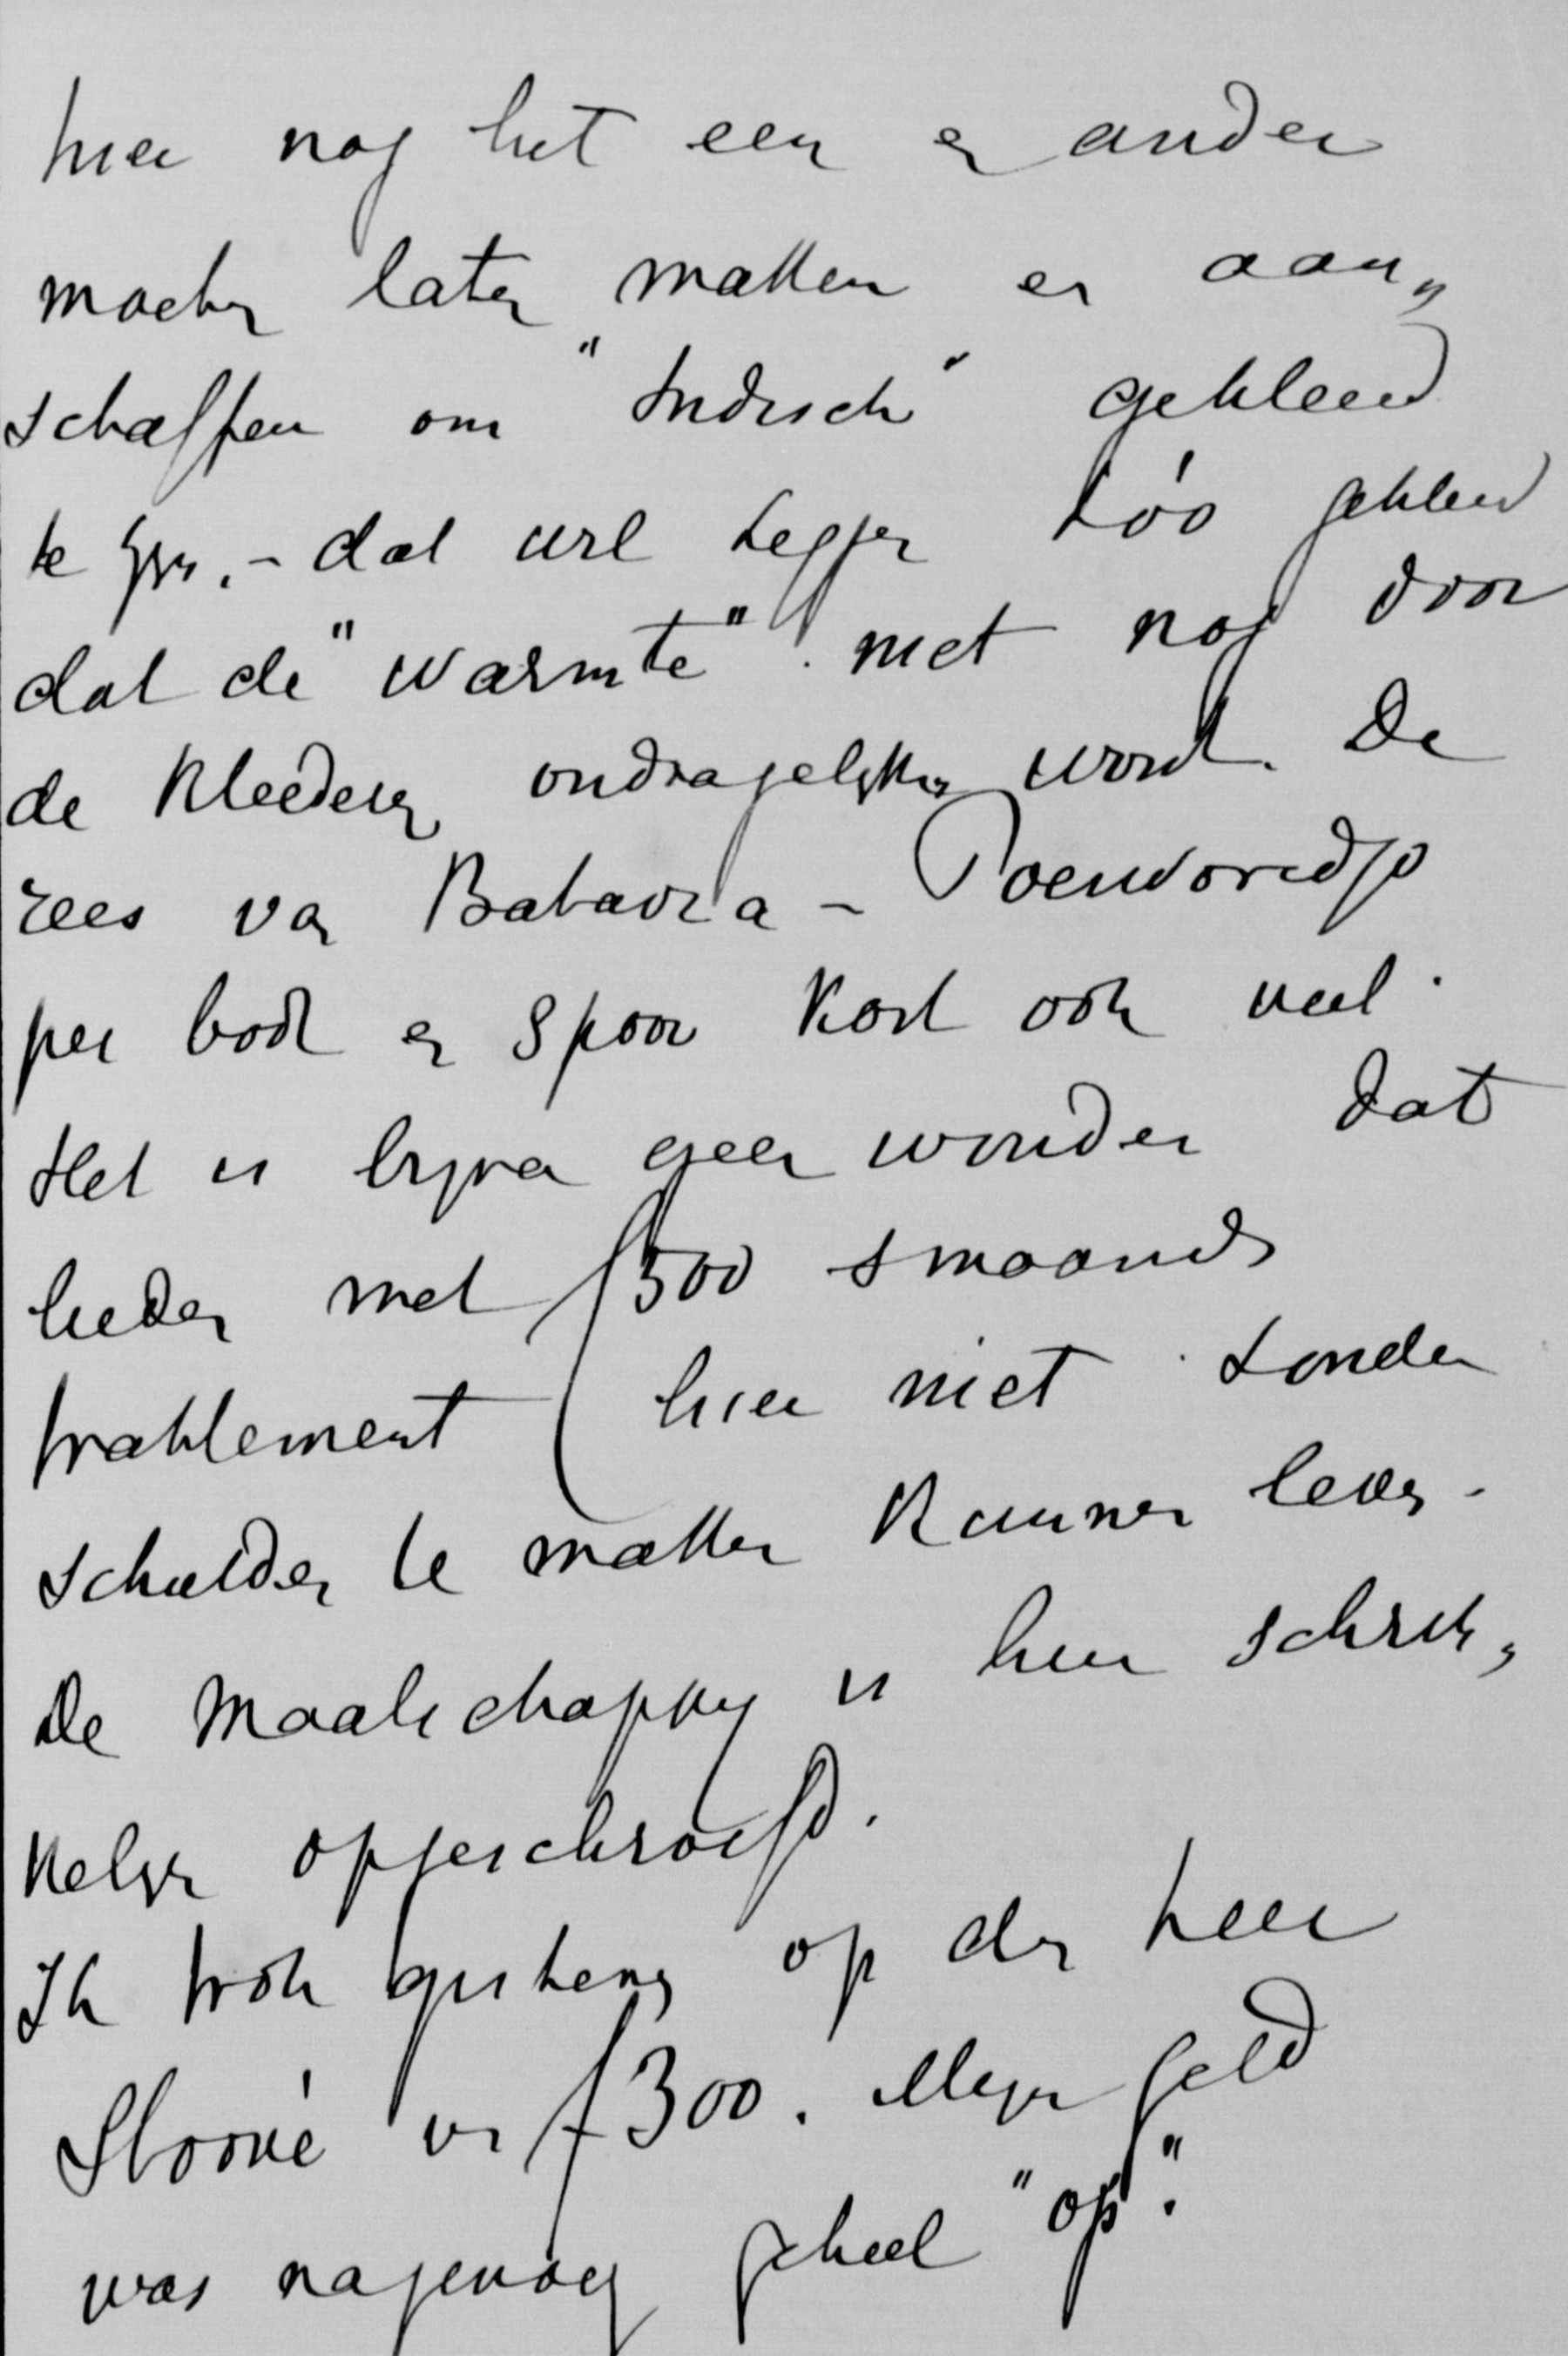 hier nog het een en ander
moeten laten maken en aan„
schaffen om "Indisch" gekleed
te zijn. - dat wil zeggen zóó gekleed
dat de "warmte" niet nog door
de kleederen ondragelijker wordt. De
rees van Batavia - Poerworedjo
per boot en spoor kost ook veel.
Het is bijna geen wonder dat
lieden met f500 smaands
traktement hier niet zonder
schulden te maken kunnen leven.
De Maatschappij is hier schrik„
kelijk opgeschroefd.
Ik trok gisteren op den heer
vr f300. Mijn geld
was nagenoeg geheel "op".